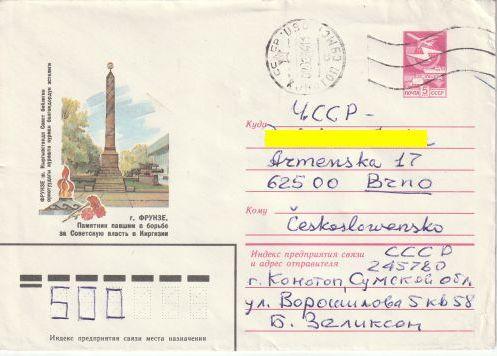 ПОЧТА 5 СССР
ФРУНЗЕ ш. Кыргызстанда Совет бийлигин
орнотууда курман болгондордун эстелиги
г. ФРУНЗЕ.
Памятник павшим в борьбе
за Советскую власть в Киргизии
Куда ЧССР-
Armenska 17
62500 Brno
Кому
Československo
Индекс предприятия связи
и адрес отправителя
СССР
245780
г. Конотоп, Сумской обл.
ул. Ворошилова 5 кв 58
Б. Зеликсон
500
Индекс предприятия связи места назначения